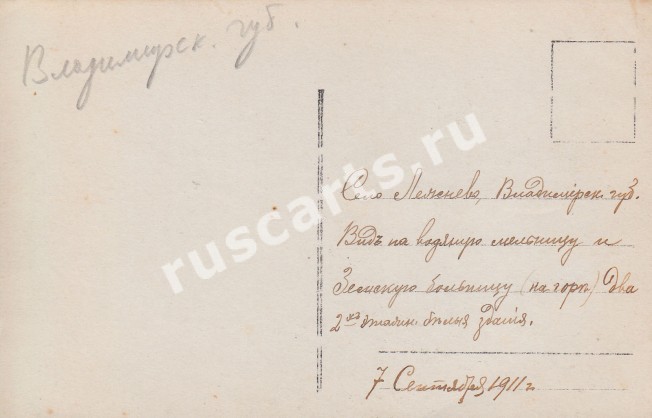 Владимирск. губ.
Село Лежнево, Владимірск. губ.
Видъ на водяную мельницу и
Земскую больницу (на горѣ) два
2хъ этажн. бѣлыя зданія.
7 Сентября 1911 г.
ruscarts.ru